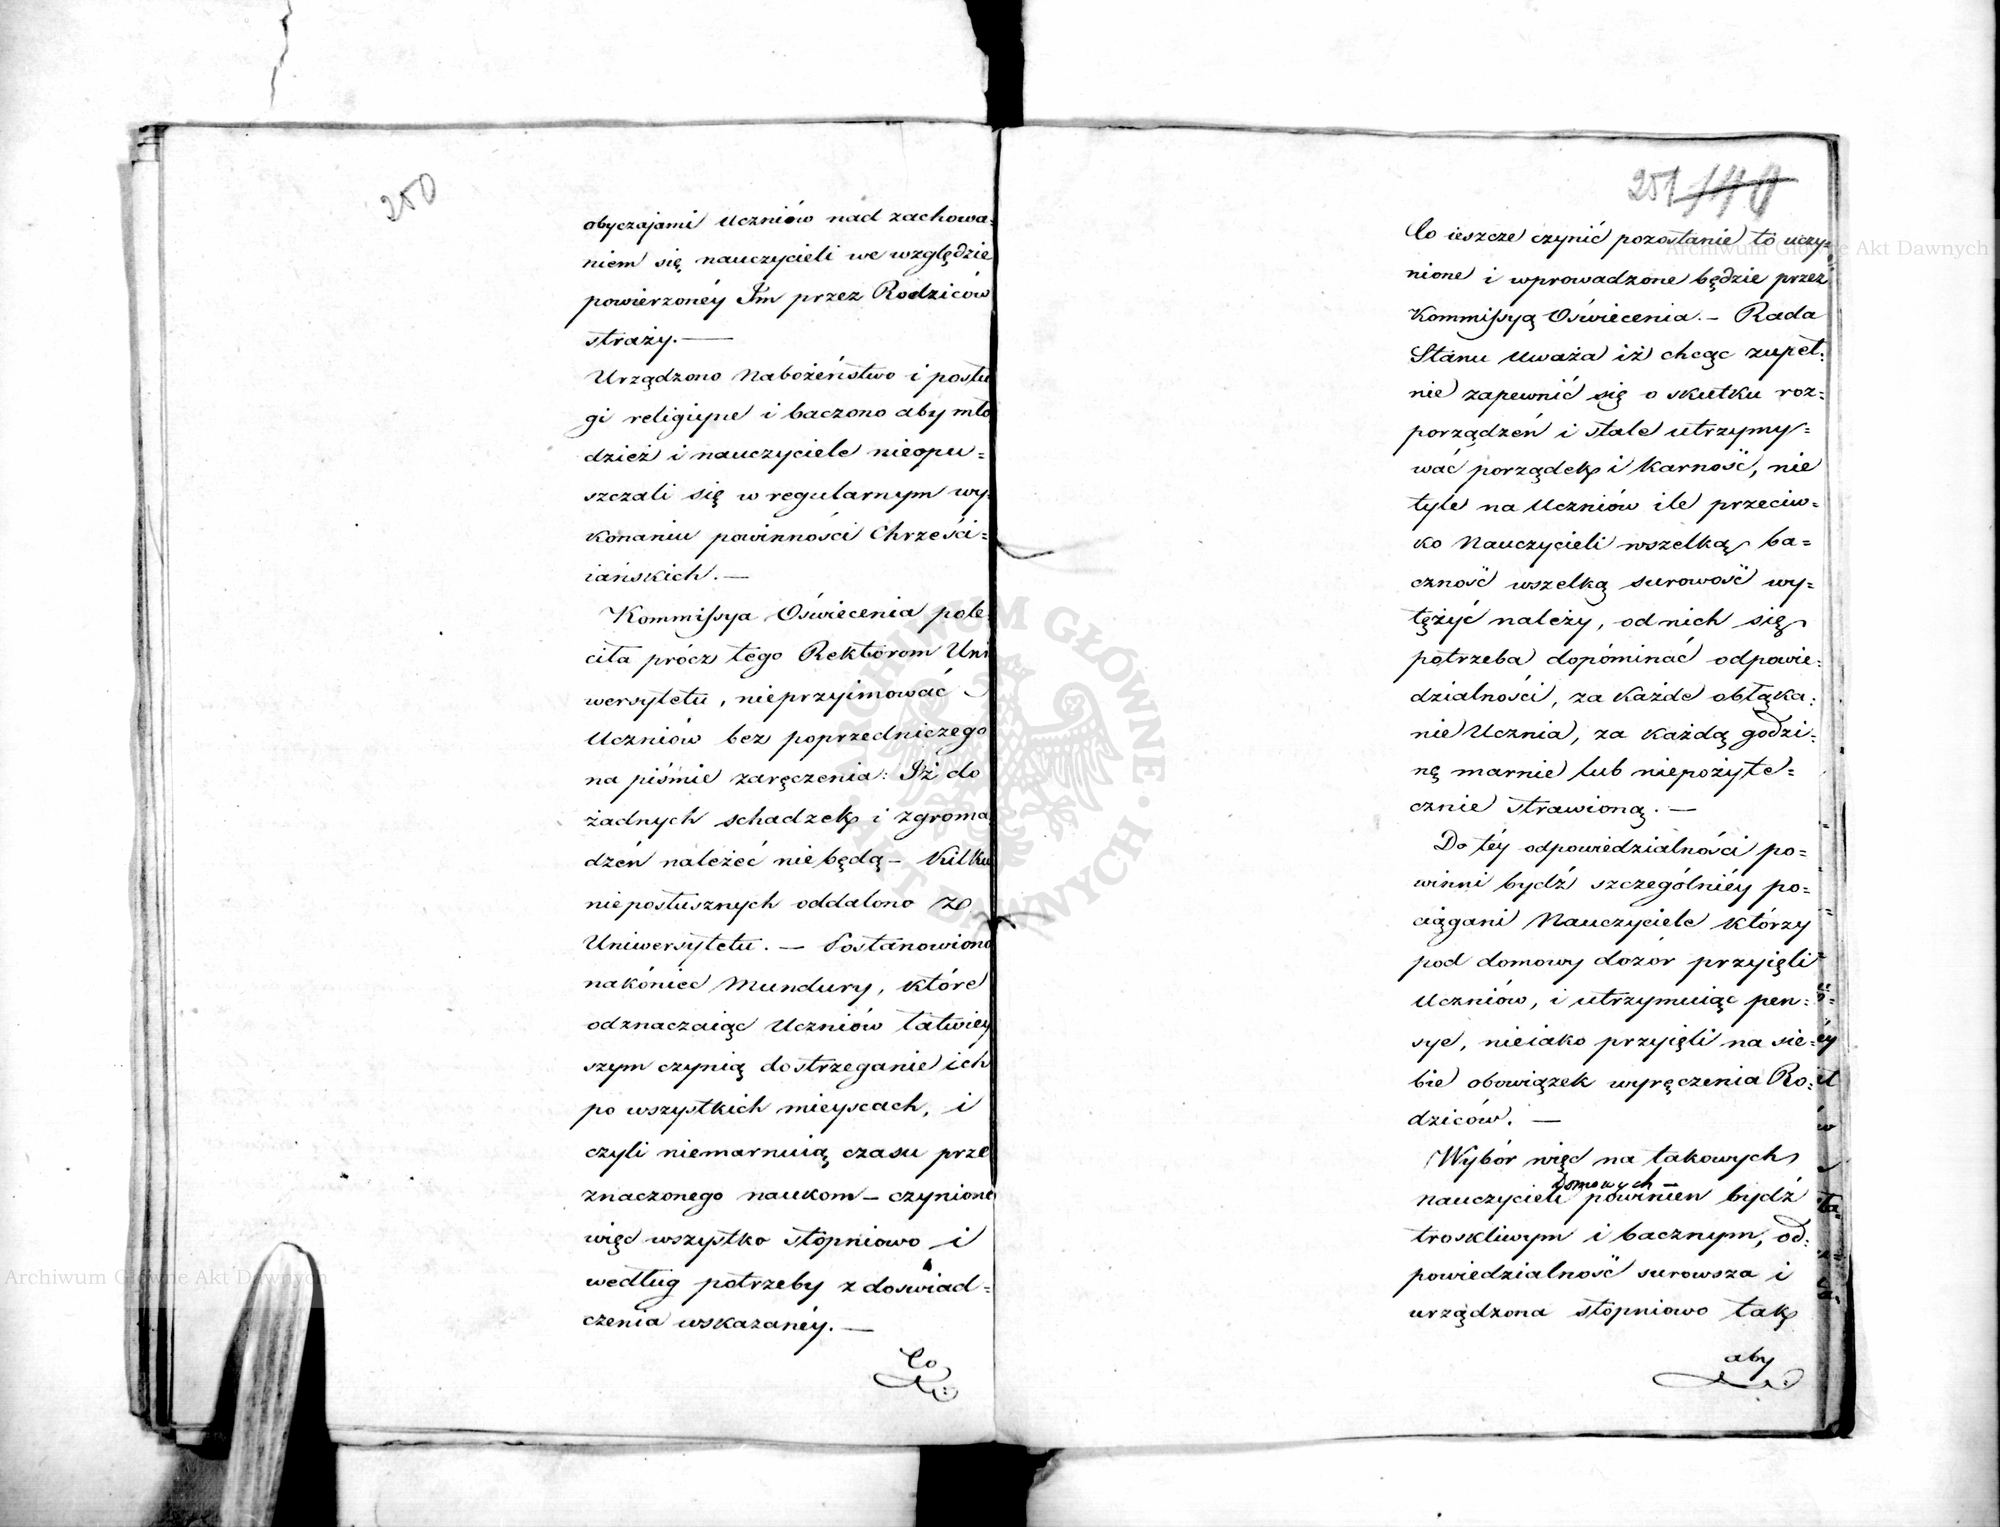 250
obyczajami Uczniów nad zachowa=
niem się nauczycieli we względzie
powierzonéy Im przez Rodziców
straży. —
Urządzono Nabożeństwo i posłu
gi religiyne i baczono aby mło
dzież i nauczyciele nieopu=
szczali się w regularnym wy=
konaniu powinności Chrześci=
iańskich. —
Kommissya Oświecenia pole=
ciła prócz tego Rektorom Uni
wersytetu, nieprzyimować
Uczniów bez poprzedniczego
na piśmie zaręczenia: Iż do
żadnych schadzek i zgroma
dzeń należeć nie będą — Kilku
nieposłusznych oddalono ze
Uniwersytetu. — Postanowiono
nakóniec Mundury, które
odznaczaiąc Uczniów łatwiey
szym czynią dostrzeganie ich
po wszystkich mieyscach, i
czyli niemarnuią czasu prze
znaczonego naukom — czyniono
więc wszystko stopniowo i
według potrzeby z doświad=
czenia wskazanéy. —
Co
251 140
Co ieszcze czynić pozostanie to uczy=
nione i wprowadzone będzie przez
Kommissyą Oświecenia. — Rada
Stanu Uważa iż chcąc zupeł=
nie zapewnić się o skutku roz=
porządzeń i stale utrzymy=
wać porządek i Karność, nie
tyle na Uczniów ile przeciw=
ko Nauczycieli wszelką ba=
czność wszelką surowość wy=
tężyć należy, od nich się
potrzeba dopóminać odpowie=
dzialności, za każde obłąka=
nie Ucznia, za każdą godzi=
nę marnie lub niepożyte=
cznie strawioną. —
Do téy odpowiedzialności po=
winni bydź szczególniéy po=
ciągani Nauczyciele którzy
pod domowy dozór przyięli
Uczniów, i utrzymuiąc pen=
sye, nieiako przyięli na sie=
bie obowiązek wyręczenia Ro=
dziców. —
Wybór więc na takowych
Domowych
nauczycieli powinien bydź
troskliwym i bacznym, od=
powiedzialność surowsza i
urządzona stopniowo tak
aby
Archiwum Główne Akt Dawnych
Archiwum Główne Akt Dawnych
ARCHIWUM GŁÓWNE
AKT DAWNYCH